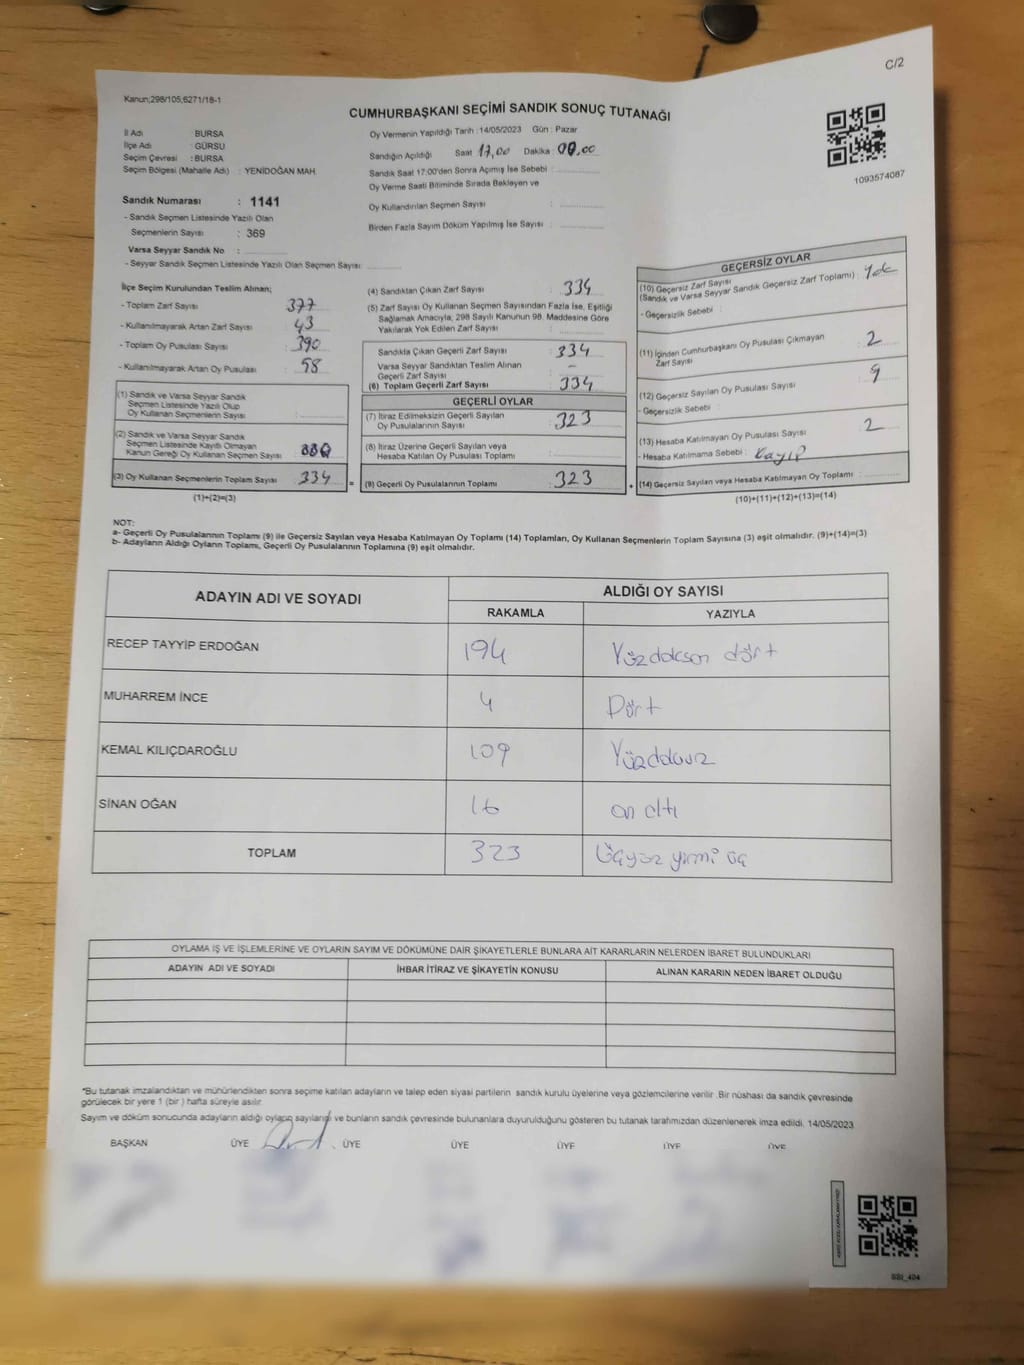 C/2
Kanun;298/105,6271/18-1
CUMHURBAŞKANI SEÇİMİ SANDIK SONUÇ TUTANAĞI
İl Adı : BURSA
İlçe Adı : GÜRSU
Seçim Çevresi : BURSA
Seçim Bölgesi (Mahalle Adı) : YENİDOĞAN MAH.
Oy Vermenin Yapıldığı Tarih : 14/05/2023 Gün : Pazar
Sandığın Açıldığı Saat 17,00 Dakika : 00,00
Sandık Saat 17:00'den Sonra Açımış İse Sebebi :
Oy Verme Saati Bitiminde Sırada Bekleyen ve
Oy Kullandırılan Seçmen Sayısı :
Birden Fazla Sayım Döküm Yapılmış İse Sayısı :
1093574087
Sandık Numarası : 1141
- Sandık Seçmen Listesinde Yazılı Olan
Seçmenlerin Sayısı : 369
Varsa Seyyar Sandık No :
- Seyyar Sandık Seçmen Listesinde Yazılı Olan Seçmen Sayısı:
İlçe Seçim Kurulundan Teslim Alınan;
- Toplam Zarf Sayısı : 377
- Kullanılmayarak Artan Zarf Sayısı : 43
- Toplam Oy Pusulası Sayısı : 390
- Kullanılmayarak Artan Oy Pusulası : 58
(1) Sandık ve Varsa Seyyar Sandık
Seçmen Listesinde Yazılı Olup
Oy Kullanan Seçmenlerin Sayısı :
(2) Sandık ve Varsa Seyyar Sandık
Seçmen Listesinde Kayıtlı Olmayan
Kanun Gereği Oy Kullanan Seçmen Sayısı :
(3) Oy Kullanan Seçmenlerin Toplam Sayısı : 334
(1)+(2)=(3)
(4) Sandıktan Çıkan Zarf Sayısı : 334
(5) Zarf Sayısı Oy Kullanan Seçmen Sayısından Fazla İse, Eşitliği
Sağlamak Amacıyla, 298 Sayılı Kanunun 98. Maddesine Göre
Yakılarak Yok Edilen Zarf Sayısı :
Sandıkta Çıkan Geçerli Zarf Sayısı : 334
Varsa Seyyar Sandıktan Teslim Alınan
Geçerli Zarf Sayısı : –
(6) Toplam Geçerli Zarf Sayısı : 334
GEÇERLİ OYLAR
(7) İtiraz Edilmeksizin Geçerli Sayılan
Oy Pusulalarının Sayısı : 323
(8) İtiraz Üzerine Geçerli Sayılan veya
Hesaba Katılan Oy Pusulası Toplamı :
= (9) Geçerli Oy Pusulalarının Toplamı : 323
GEÇERSİZ OYLAR
(10) Geçersiz Zarf Sayısı
(Sandık ve Varsa Seyyar Sandık Geçersiz Zarf Toplamı) : Yok
- Geçersizlik Sebebi :
(11) İçinden Cumhurbaşkanı Oy Pusulası Çıkmayan
Zarf Sayısı : 2
(12) Geçersiz Sayılan Oy Pusulası Sayısı : 9
- Geçersizlik Sebebi :
(13) Hesaba Katılmayan Oy Pusulası Sayısı : 2
- Hesaba Katılmama Sebebi : Kayıp
+ (14) Geçersiz Sayılan veya Hesaba Katılmayan Oy Toplamı :
(10)+(11)+(12)+(13)=(14)
NOT:
a- Geçerli Oy Pusulalarının Toplamı (9) ile Geçersiz Sayılan veya Hesaba Katılmayan Oy Toplamı (14) Toplamları, Oy Kullanan Seçmenlerin Toplam Sayısına (3) eşit olmalıdır. (9)+(14)=(3)
b- Adayların Aldığı Oyların Toplamı, Geçerli Oy Pusulalarının Toplamına (9) eşit olmalıdır.
ADAYIN ADI VE SOYADI
ALDIĞI OY SAYISI
RAKAMLA YAZIYLA
RECEP TAYYİP ERDOĞAN 194 Yüzdoksan dört
MUHARREM İNCE 4 Dört
KEMAL KILIÇDAROĞLU 109 Yüzdokuz
SİNAN OĞAN 16 on altı
TOPLAM 323 Üçyüz yirmi üç
OYLAMA İŞ VE İŞLEMLERİNE VE OYLARIN SAYIM VE DÖKÜMÜNE DAİR ŞİKAYETLERLE BUNLARA AİT KARARLARIN NELERDEN İBARET BULUNDUKLARI
ADAYIN ADI VE SOYADI İHBAR İTİRAZ VE ŞİKAYETİN KONUSU ALINAN KARARIN NEDEN İBARET OLDUĞU
*Bu tutanak imzalandıktan ve mühürlendikten sonra seçime katılan adayların ve talep eden siyasi partilerin sandık kurulu üyelerine veya gözlemcilerine verilir .Bir nüshası da sandık çevresinde
görülecek bir yere 1 (bir) hafta süreyle asılır.
Sayım ve döküm sonucunda adayların aldığı oyların sayılarını ve bunların sandık çevresinde bulunanlara duyurulduğunu gösteren bu tutanak tarafımızdan düzenlenerek imza edildi. 14/05/2023
BAŞKAN ÜYE ÜYE ÜYE ÜYE ÜYE ÜYE
SSI_404